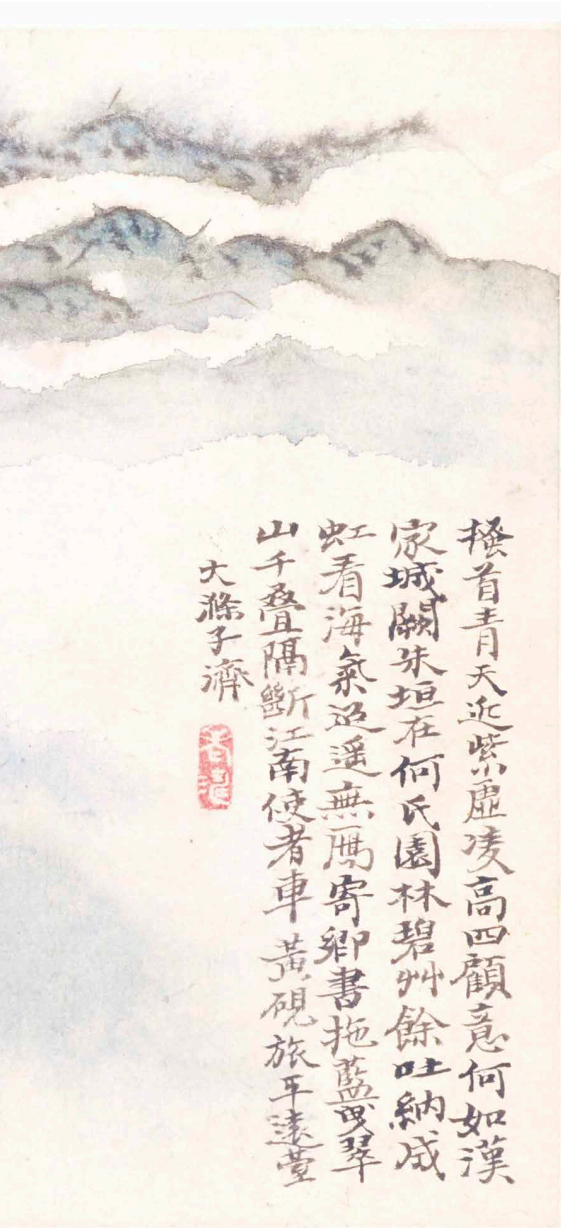 搔首青天近紫虛凌高四顧意何如漢
家城闕朱垣在何氏園林碧艸餘吐納成
虹看海氣迢遥無鴈寄鄉書拖藍曳翠
山千疊隔斷江南使者車 黃硯旅平遠臺
大滌子濟